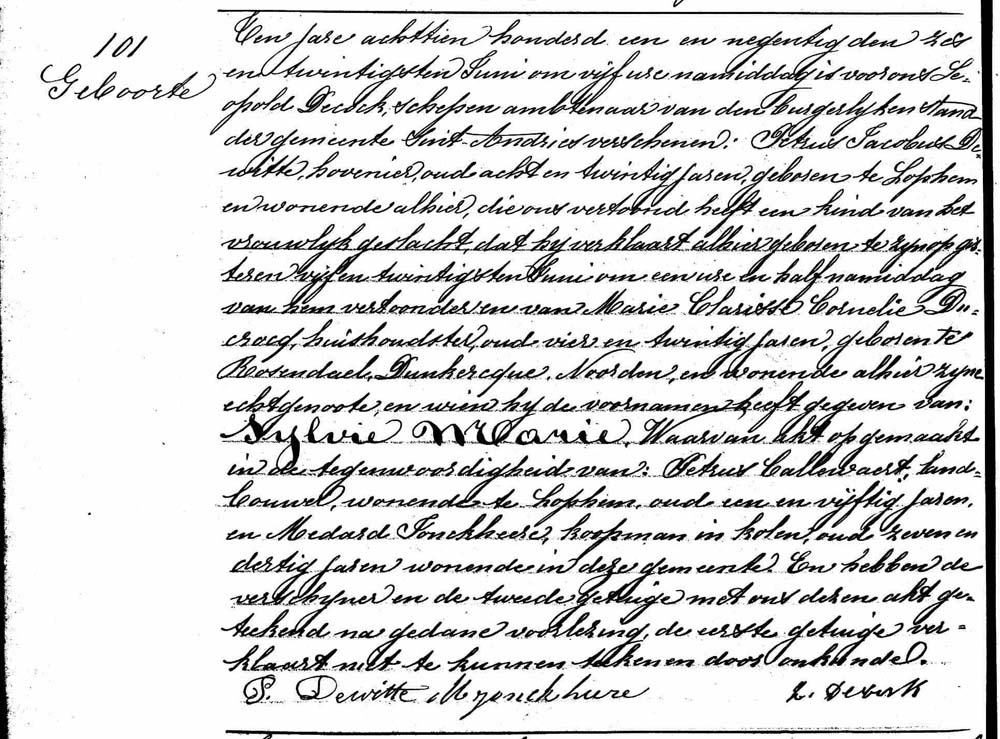 101
Geboorte
Ten jare achttien honderd een en negentig den zes
en twintigsten Juni om vijf ure namiddag is voor ons Le-
opold Decock, schepen ambtenaar van den burgerlyken stand
der gemeente Sint-Andries verschenen: Petrus Jacobus De-
witte, hovenier, oud acht en twintig jaren, geboren te Lophem
en wonende alhier, die ons vertoond heeft een kind van het
vrouwlyk geslacht, dat hy verklaart alhier geboren te zyn op gis-
teren vyf en twintigsten Juni om een ure en half namiddag
van hem vertoonder en van Marie Clarisse Cornelie Du-
crocq, huishoudster, oud vier en twintig jaren, geboren te
Rosendael, Dunkercque, Noorden, en wonende alhier zyne
echtgenoote, en wien hy de voornamen heeft gegeven van:
Sylvie Marie. Waarvan akt opgemaakt
in de tegenwoordigheid van: Petrus Callewaert, land-
bouwer, wonende te Lophem, oud een en vijftig jaren,
en Medard Jonckheere, koopman in kolen, oud zeven en
dertig jaren wonende in deze gemeente. En hebben de
verschyner en de tweede getuige met ons dezen akt ge-
teekend na gedane voorlezing, de eerste getuige ver-
klaart niet te kunnen teekenen door onkunde.
P. Dewitte M Jonckheere L. Decock